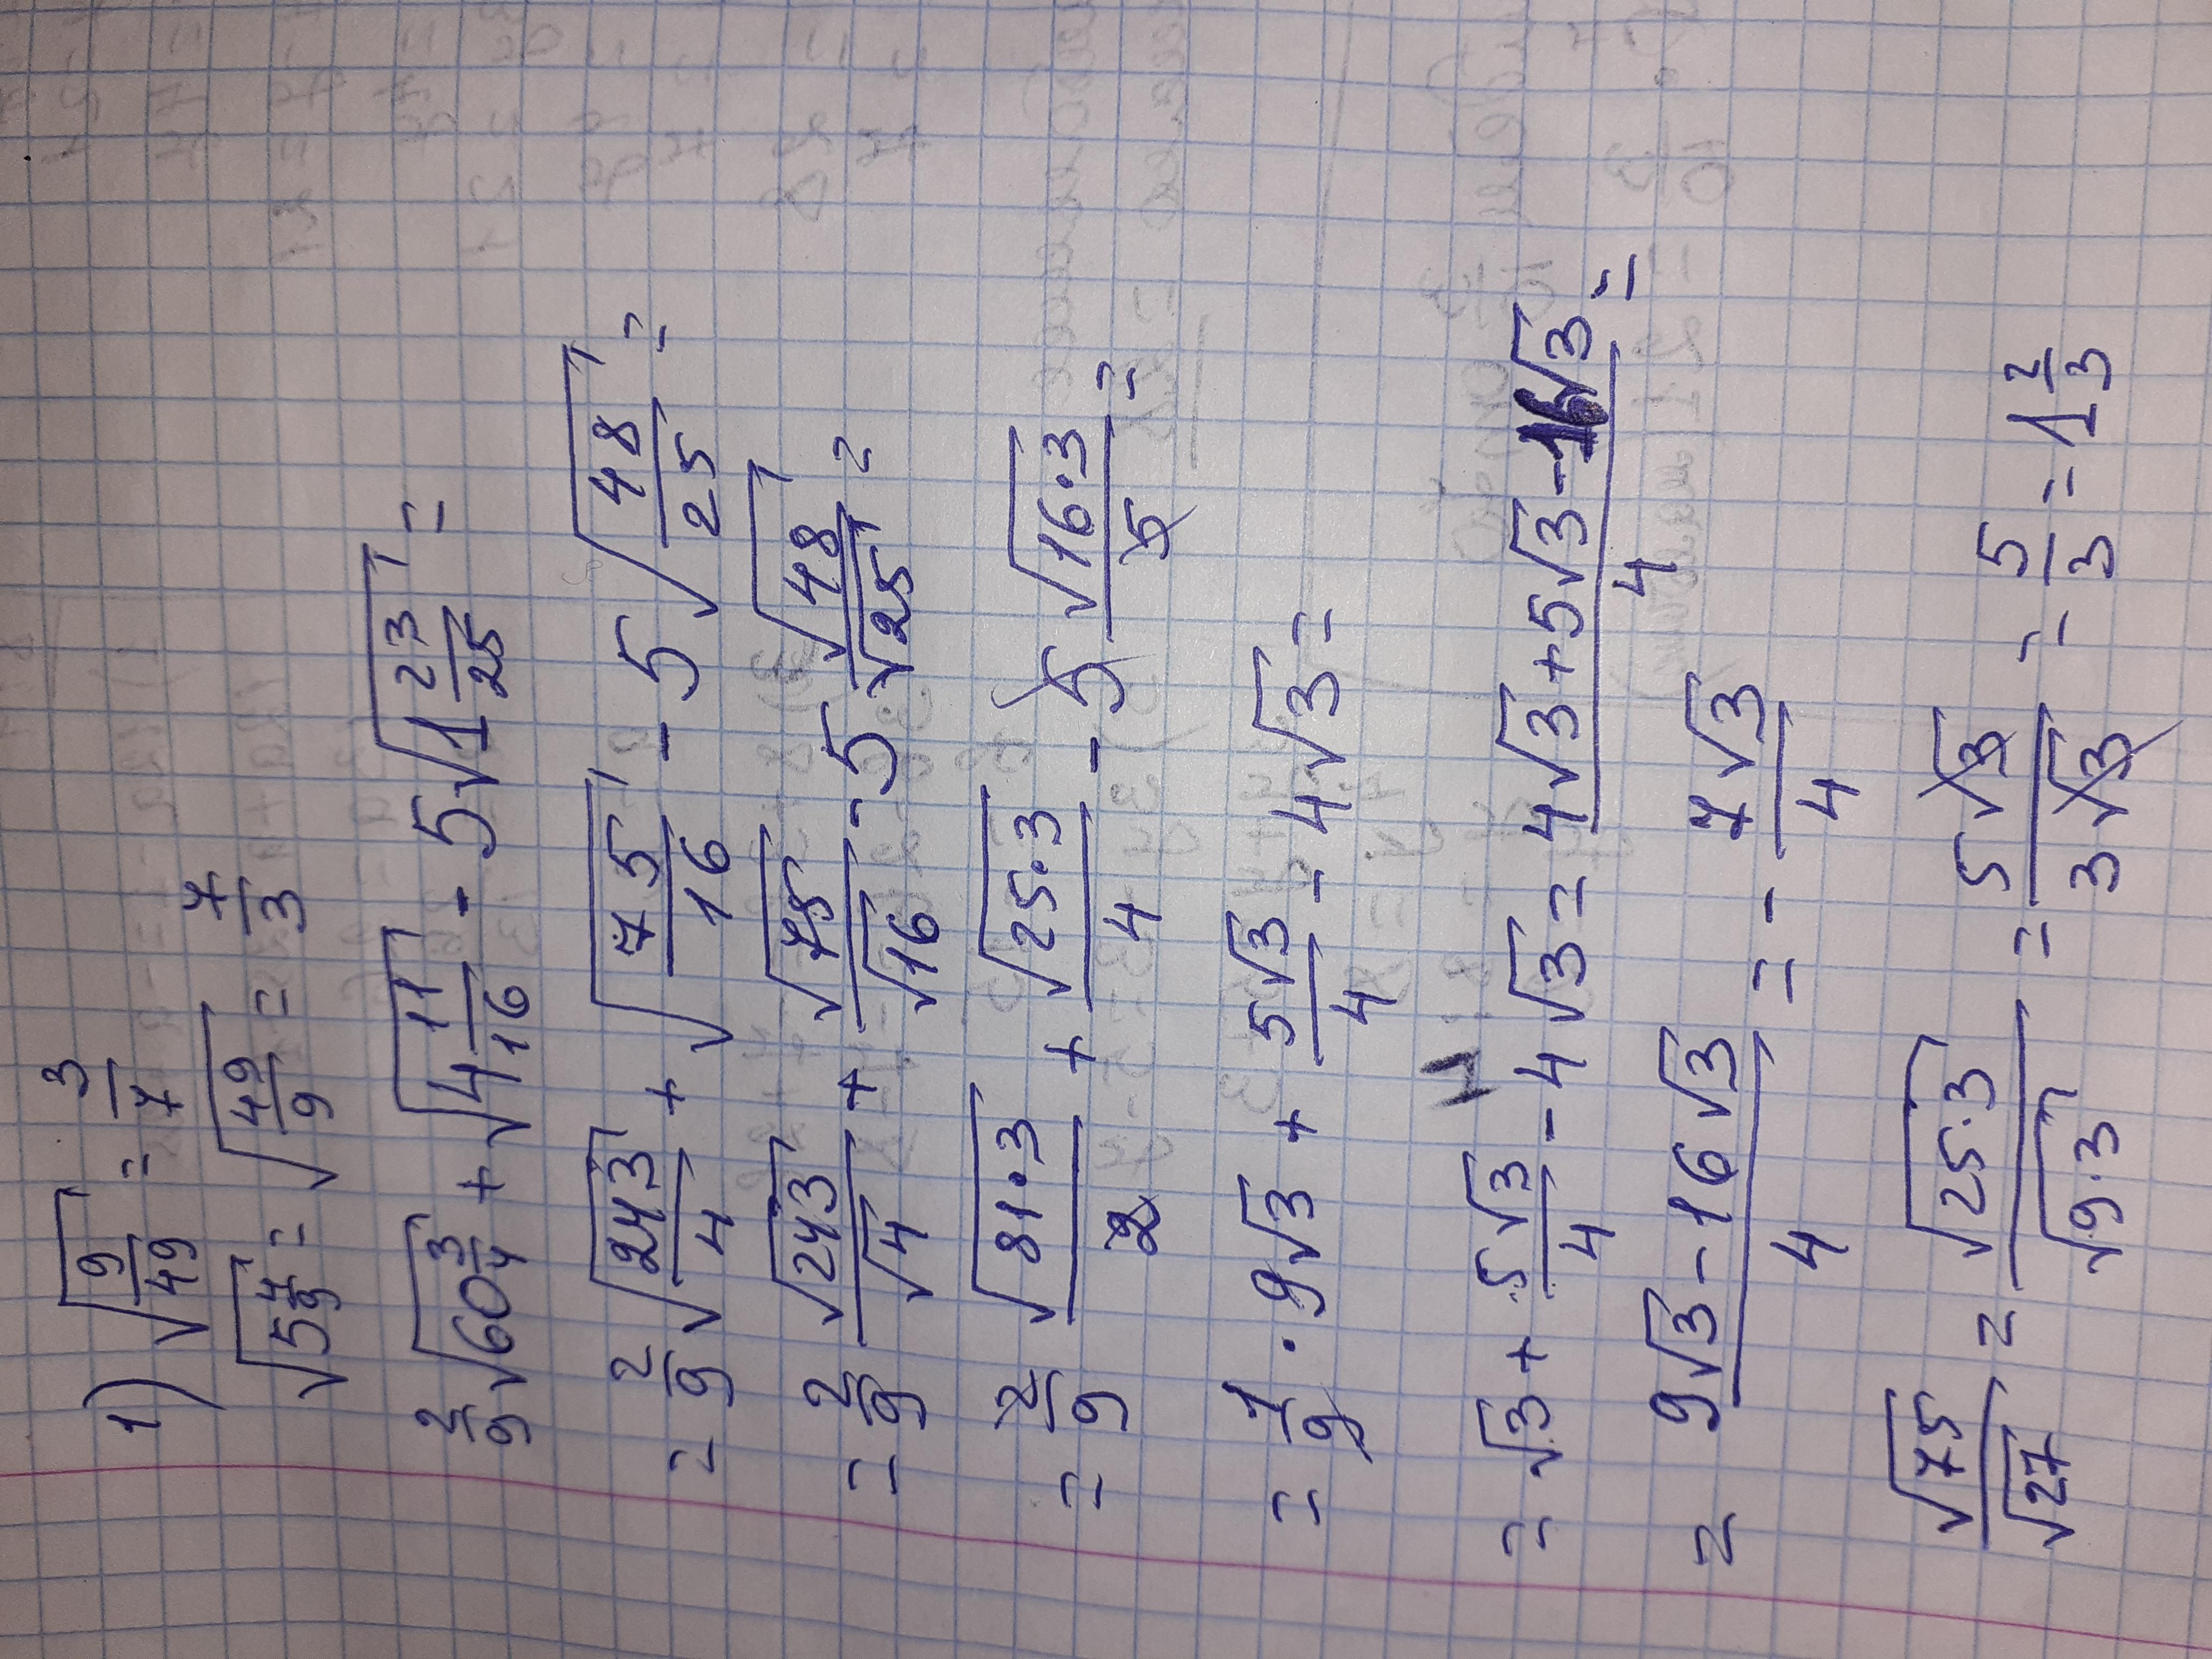 1) √(9/49) = 3/7
√(5 4/9) = √(49/9) = 7/3
2/9 √(60 3/4) + √(4 11/16) - 5√(1 23/25) =
= 2/9 √(243/4) + √(75/16) - 5√(48/25) =
= 2/9 √243/√4 + √75/√16 - 5 √48/√25 =
= 2/9 √(81·3)/2 + √(25·3)/4 - 5 √(16·3)/5 =
= 1/9 · 9√3 + 5√3/4 - 4√3 =
= √3 + 5√3/4 - 4√3 = (4√3 + 5√3 - 16√3)/4 =
= (9√3 - 16√3)/4 = - 7√3/4
√75/√27 = √(25·3)/√(9·3) = 5√3/3√3 = 5/3 = 1 2/3